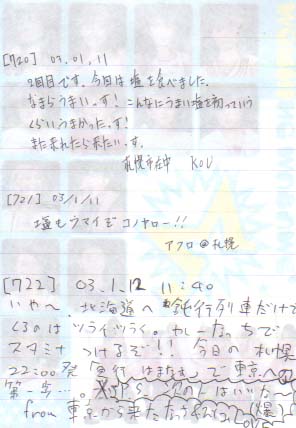 [720] 03.01.11
2回目です。今回は塩を食べました。
なまらうまいっす! こんなにうまい塩を初っていう
くらいうまかったっす!
また来れたら来たいっす。
札幌市在中 KOU
[721] 03/1/11
塩もウマイぞコノヤロー!!
アフロ@札幌
[722] 03.1.12 11:40
いや〜、北海道へ鈍行列車だけで
くるのはツライツライ。カレーなっちで
スタミナつけるぞ!! 今日の札幌
22:00発 急行はまなすで東京への
第一歩…。
from 東京から来たなっち (爆)
LOVE